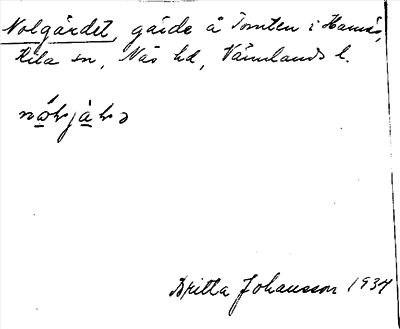 Nolgärdet, gärde å Tomten i Hamås,
Kila sn, Näs hd, Värmlands l.
Britta Johansson 1934